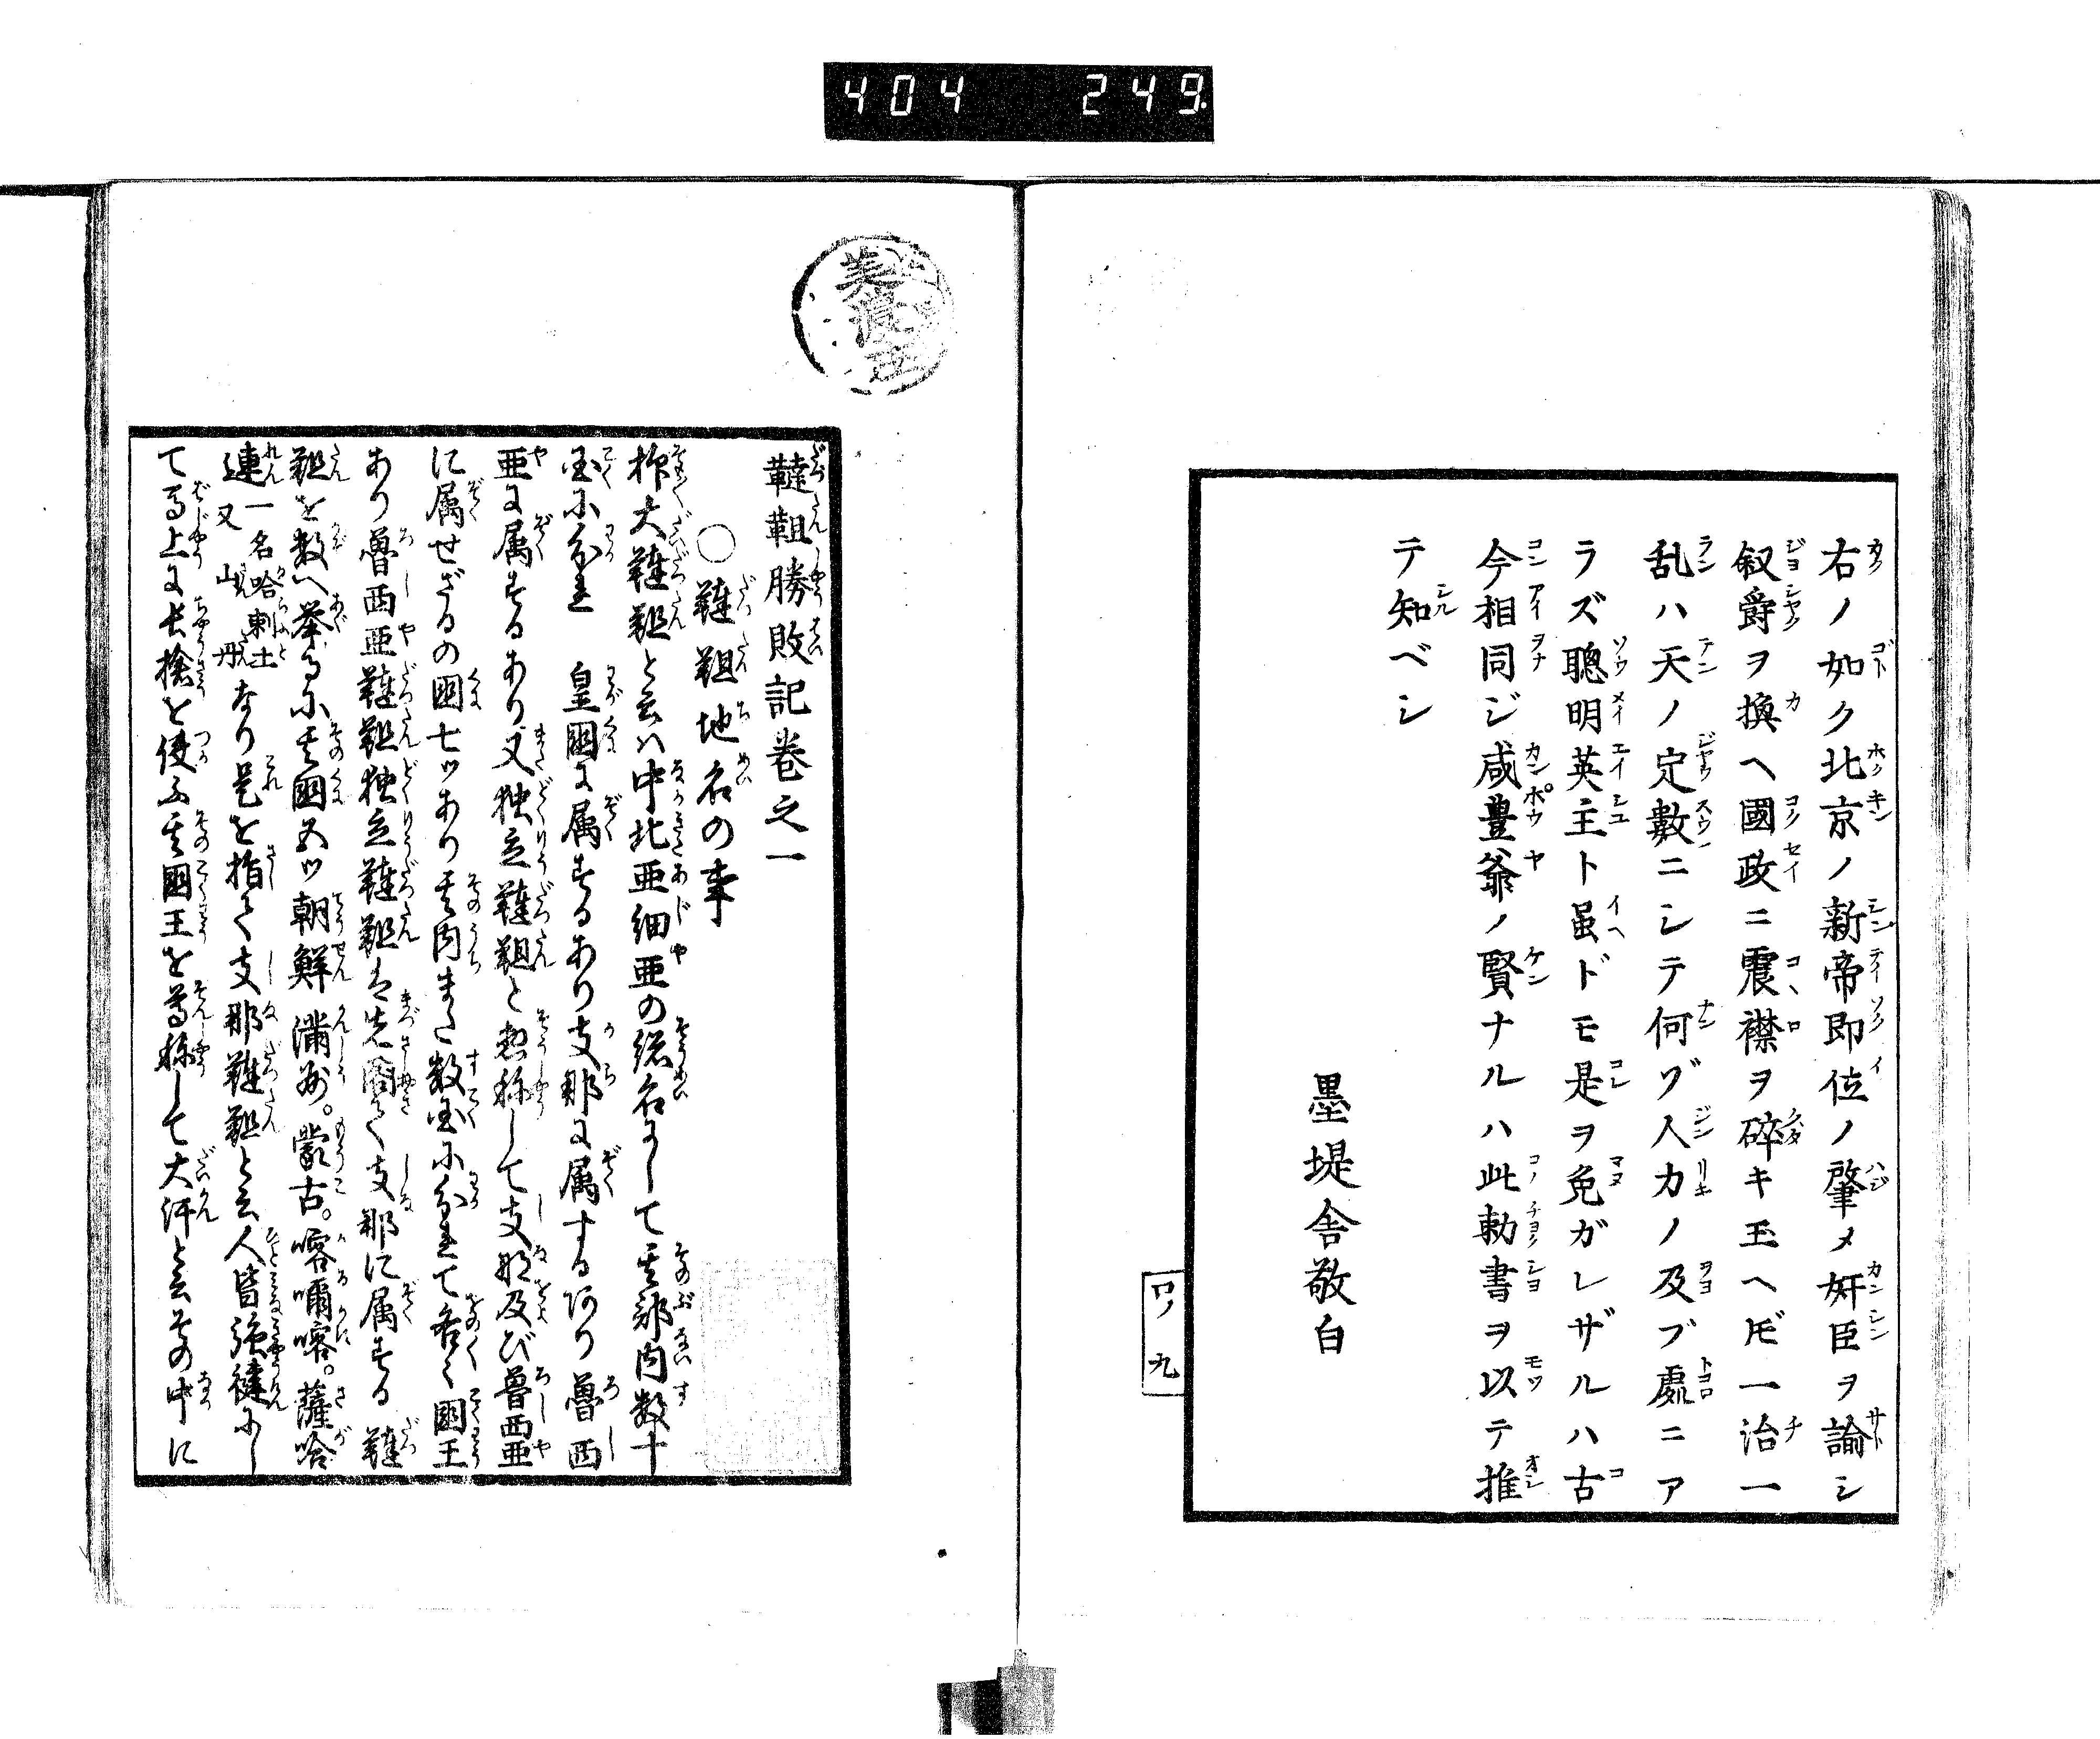 404 249
右ノ如ク北京ノ新帝即位ノ肇メ奸臣ヲ諭シ
叙爵ヲ換ヘ國政ニ震襟ヲ碎キ玉ヘ𪜈一治一
乱ハ天ノ定數ニシテ何ゾ人力ノ及ブ處ニア
ラズ聰明英主ト虽ドモ是ヲ免ガレザルハ古
今相同ジ咸豊爺ノ賢ナルハ此勅書ヲ以テ推
テ知ベシ
墨堤舎敬白
口ノ九
韃靼勝敗記巻之一
○韃靼地名の事
抑大韃靼と云は中北亜細亜の総名にして其部内数十
国に分れ 皇國に属するあり支那に属する阿り魯西
亜に属するあり又独立韃靼と惣称して支那及び魯西亜
に属せざるの國七ツあり其内また数国に分れて各〻國王
あり魯西亜韃靼独立韃靼は先閣て支那に属する韃
靼を数へ挙るに其國五ツ朝鮮滿州。蒙古。喀爾喀。薩哈
連一名哈剌土又山丹なり是を指て支那韃靼と云人皆強健にし
て馬上に長槍を使ふ其國王を尊称して大汗と云その中に